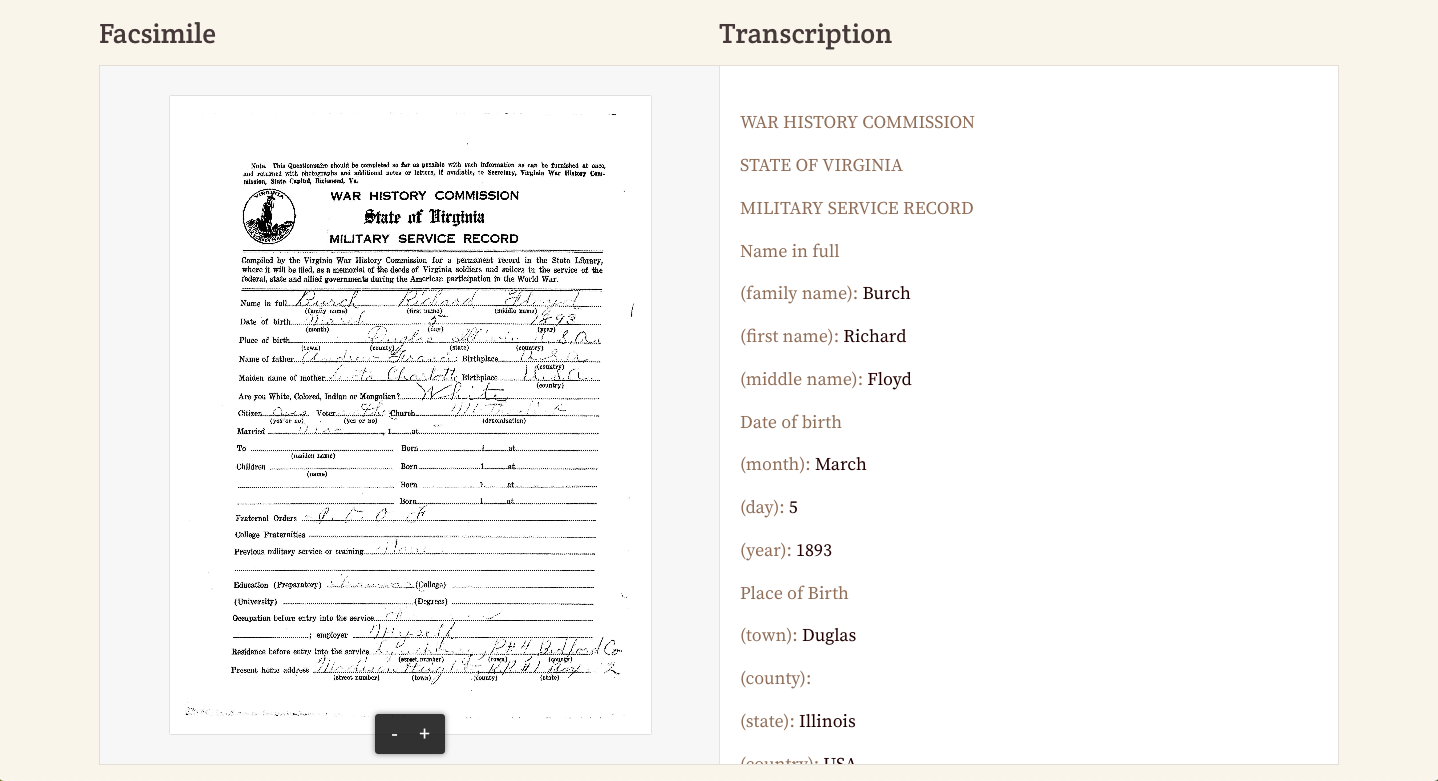 Facsimile
Note. This Questionnaire should be completed so far as possible with such information as can be furnished at once,
and returned with photographs and additional notes or letters, if available, to Secretary, Virginia War History Com-
mission, State Capitol, Richmond, Va.
VIRGINIA
WAR HISTORY COMMISSION
State of Virginia
MILITARY SERVICE RECORD
Compiled by the Virginia War History Commission for a permanent record in the State Library,
where it will be filed, as a memorial of the deeds of Virginia soldiers and sailors in the service of the
federal, state and allied governments during the American participation in the World War.
Name in full Burch Richard Floyd
(family name) (first name) (middle name)
Date of birth March 5 1893
(month) (day) (year)
Place of birth Duglas Illinois U.S.A.
(town) (county) (state) (country)
Name of father Andrew Birthplace U.S.A.
(country)
Maiden name of mother Charlott Birthplace U.S.A.
(country)
Are you White, Colored, Indian or Mongolian? White
Citizen Voter Church
(yes or no) (yes or no) (denomination)
Married , 1 at
To Born 1 at
(maiden name)
Children Born 1 at
(name)
Born 1 at
Born 1 at
Fraternal Orders
College Fraternities
Previous military service or training None
Education (Preparatory) (College)
(University) (Degrees)
Occupation before entry into the service
; employer Myself
Residence before entry into the service Lynchburg R#4 Bedford Co
(street number) (town) (county)
Present home address Madison Heights R.R#1 Box 12
(street number) (town) (county) (state)
- +
Transcription
WAR HISTORY COMMISSION
STATE OF VIRGINIA
MILITARY SERVICE RECORD
Name in full
(family name): Burch
(first name): Richard
(middle name): Floyd
Date of birth
(month): March
(day): 5
(year): 1893
Place of Birth
(town): Duglas
(county):
(state): Illinois
(country): USA